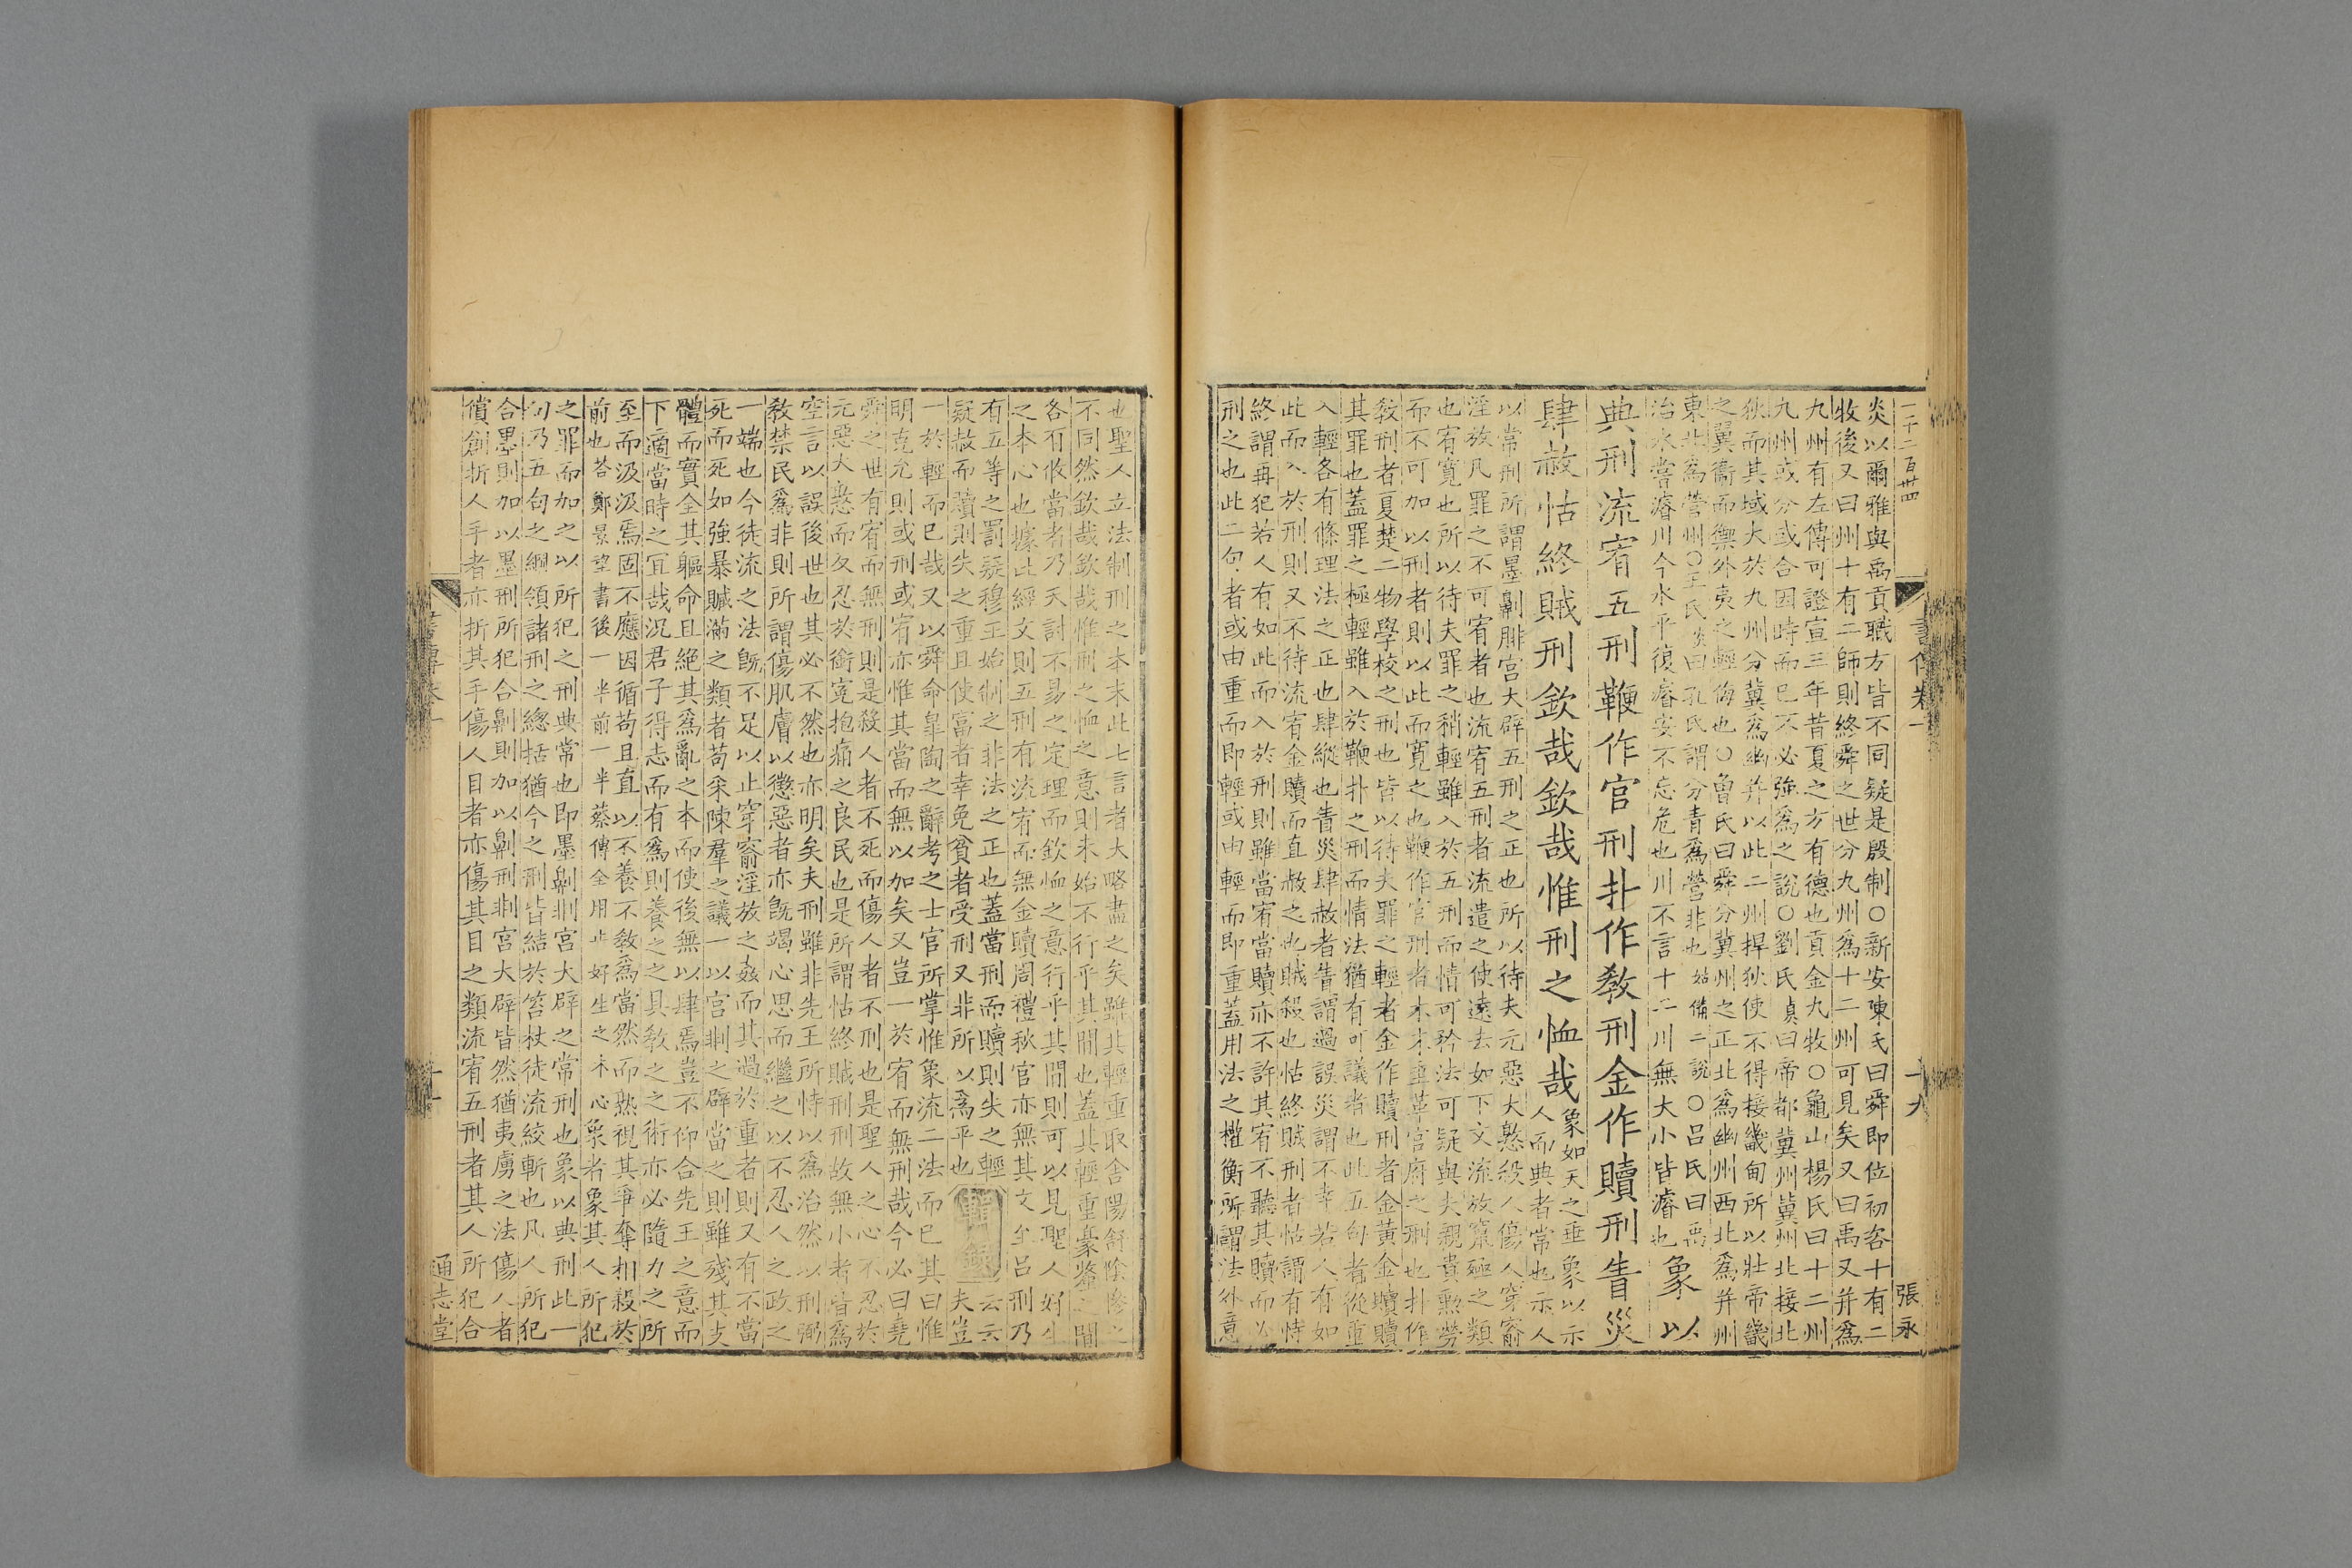 一千二百卅四
書傳卷一
十九
張永
炎以爾雅與禹貢職方皆不同疑是殷制○新安陳氏曰舜即位初咨十有二
牧後又曰州十有二師則終舜之世分九州為十二州可見矣又曰禹又并為
九州有左傳可證宣三年昔夏之方有德也貢金九牧○龜山楊氏曰十二州
九州或分或合因時而已不必強為之說○劉氏貞曰帝都冀州冀州北接北
狄而其域大於九州分冀為幽并以此二州捍狄使不得接畿甸所以壯帝畿
之翼衞而禦外夷之輕侮也○曾氏曰舜分冀州之正北為幽州西北為并州
東北為營州○王氏炎曰孔氏謂分青為營非也姑備二說○呂氏曰禹
治水嘗濬川今水平復濬安不忘危也川不言十二川無大小皆濬也
象以
典刑流宥五刑鞭作官刑扑作敎刑金作贖刑眚災
肆赦怙終賊刑欽哉欽哉惟刑之恤哉
象如天之垂象以示
人而典者常也示人
以常刑所謂墨劓剕宮大辟五刑之正也所以待夫元惡大憝殺人傷人穿窬
淫放凡罪之不可宥者也流宥五刑者流遣之使遠去如下文流放竄殛之類
也宥寬也所以待夫罪之稍輕雖入於五刑而情可矜法可疑與夫親貴勲勞
而不可加以刑者則以此而寬之也鞭作官刑者木末垂革官府之刑也扑作
敎刑者夏楚二物學校之刑也皆以待夫罪之輕者金作贖刑者金黃金贖贖
其罪也蓋罪之極輕雖入於鞭扑之刑而情法猶有可議者也此五句者從重
入輕各有條理法之正也肆縱也眚災肆赦者眚謂過誤災謂不幸若人有如
此而入於刑則又不待流宥金贖而直赦之也賊殺也怙終賊刑者怙謂有恃
終謂再犯若人有如此而入於刑則雖當宥當贖亦不許其宥不聽其贖而必
刑之也此二句者或由重而即輕或由輕而即重蓋用法之權衡所謂法外意
也聖人立法制刑之本末此七言者大略盡之矣雖其輕重取舍陽舒陰慘之
不同然欽哉欽哉惟刑之恤之意則未始不行乎其間也蓋其輕重毫釐之間
各有攸當者乃天討不易之定理而欽恤之意行乎其間則可以見聖人好生
之本心也據此經文則五刑有流宥而無金贖周禮秋官亦無其文至呂刑乃
有五等之罰疑穆王始制之非法之正也蓋當刑而贖則失之輕
輯錄
云云
疑赦而贖則失之重且使富者幸免貧者受刑又非所以為平也
夫豈
一於輕而已哉又以舜命臯陶之辭考之士官所掌惟象流二法而已其曰惟
明克允則或刑或宥亦惟其當而無以加矣又豈一於宥而無刑哉今必曰堯
舜之世有宥而無刑則是殺人者不死而傷人者不刑也是聖人之心不忍於
元惡大憝而反忍於銜寃抱痛之良民也是所謂怙終賊刑刑故無小者皆為
空言以誤後世也其必不然也亦明矣夫刑雖非先王所恃以為治然以刑弼
敎禁民為非則所謂傷肌膚以懲惡者亦旣竭心思而繼之以不忍人之政之
一端也今徒流之法旣不足以止穿窬淫放之姦而其過於重者則又有不當
死而死如強暴贓滿之類者苟采陳羣之議一以宮剕之辟當之則雖殘其支
體而實全其軀命且絕其為亂之本而使後無以肆焉豈不仰合先王之意而
下適當時之宜哉況君子得志而有為則養之之具敎之之術亦必隨力之所
至而汲汲焉固不應因循苟且直以不養不敎為當然而熟視其爭奪相殺於
前也荅鄭景望書後一半前一半蔡傳全用止好生之本心象者象其人所犯
之罪而加之以所犯之刑典常也即墨劓剕宮大辟之常刑也象以典刑此一
句乃五句之綱領諸刑之總括猶今之刑皆結於笞杖徒流絞斬也凡人所犯
合墨則加以墨刑所犯合劓則加以劓刑剕宮大辟皆然猶夷虜之法傷人者
償創折人手者亦折其手傷人目者亦傷其目之類流宥五刑者其人所犯合
通志堂